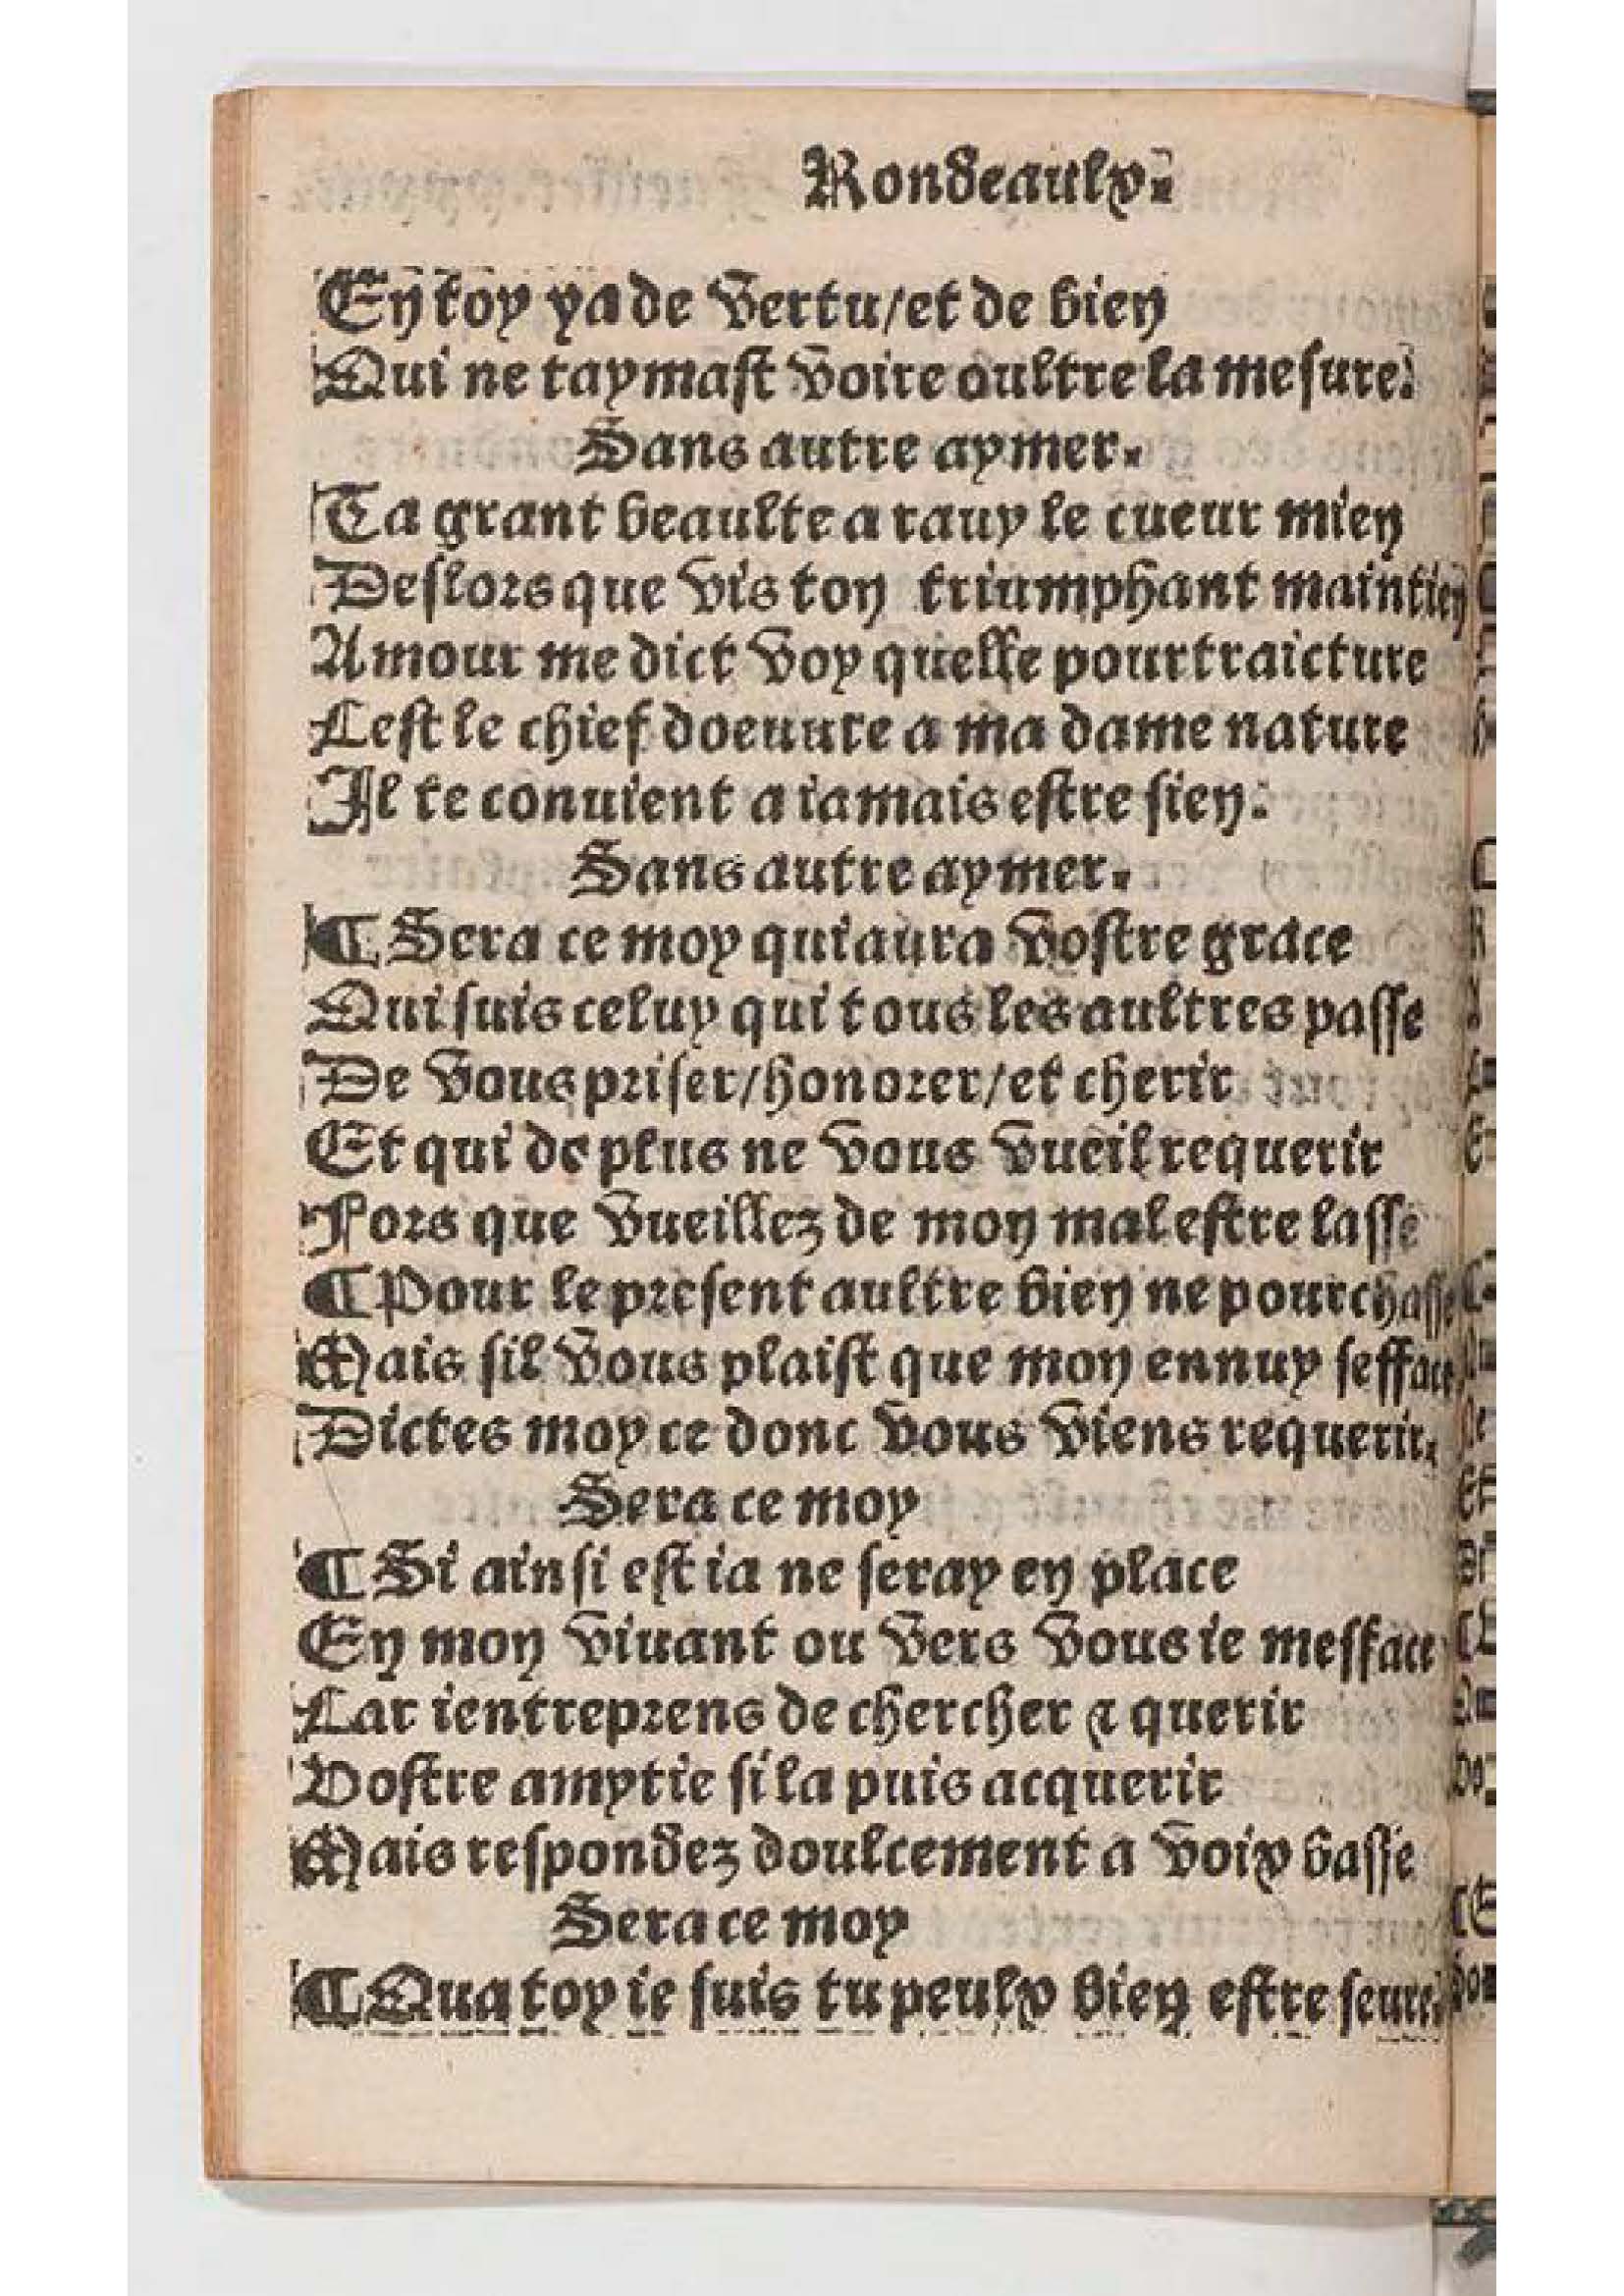 Rondeaulx.
En toy ya de vertu/et de bien
Qui ne taymast voire oultre la mesure.
Sans autre aymer.
Ta grant beaulte a rauy le cueur mien
Deslors que vis ton triumphant maintien
Amour me dict voy quelle pourtraicture
Cest le chief doeuure a ma dame nature
Il te conuient a iamais estre sien.
Sans autre aymer.
¶ Sera ce moy qui aura vostre grace
Qui suis celuy qui tous les aultres passe
De vous priser/honorer/et cherir
Et qui de plus ne vous vueil requerir
Fors que vueillez de mon mal estre lasse
¶ Pour le present aultre bien ne pourchasse
Mais sil vous plaist que mon ennuy sefface
Dictes moy ce donc vous viens requerir.
Sera ce moy
¶ Si ainsi est ia ne seray en place
En mon viuant ou vers vous ie mefface
Car ientreprens de chercher ⁊ querir
Vostre amytie si la puis acquerir
Mais respondez doulcement a voix basse
Sera ce moy
¶ Qua toy ie suis tu peulx bien estre seure.